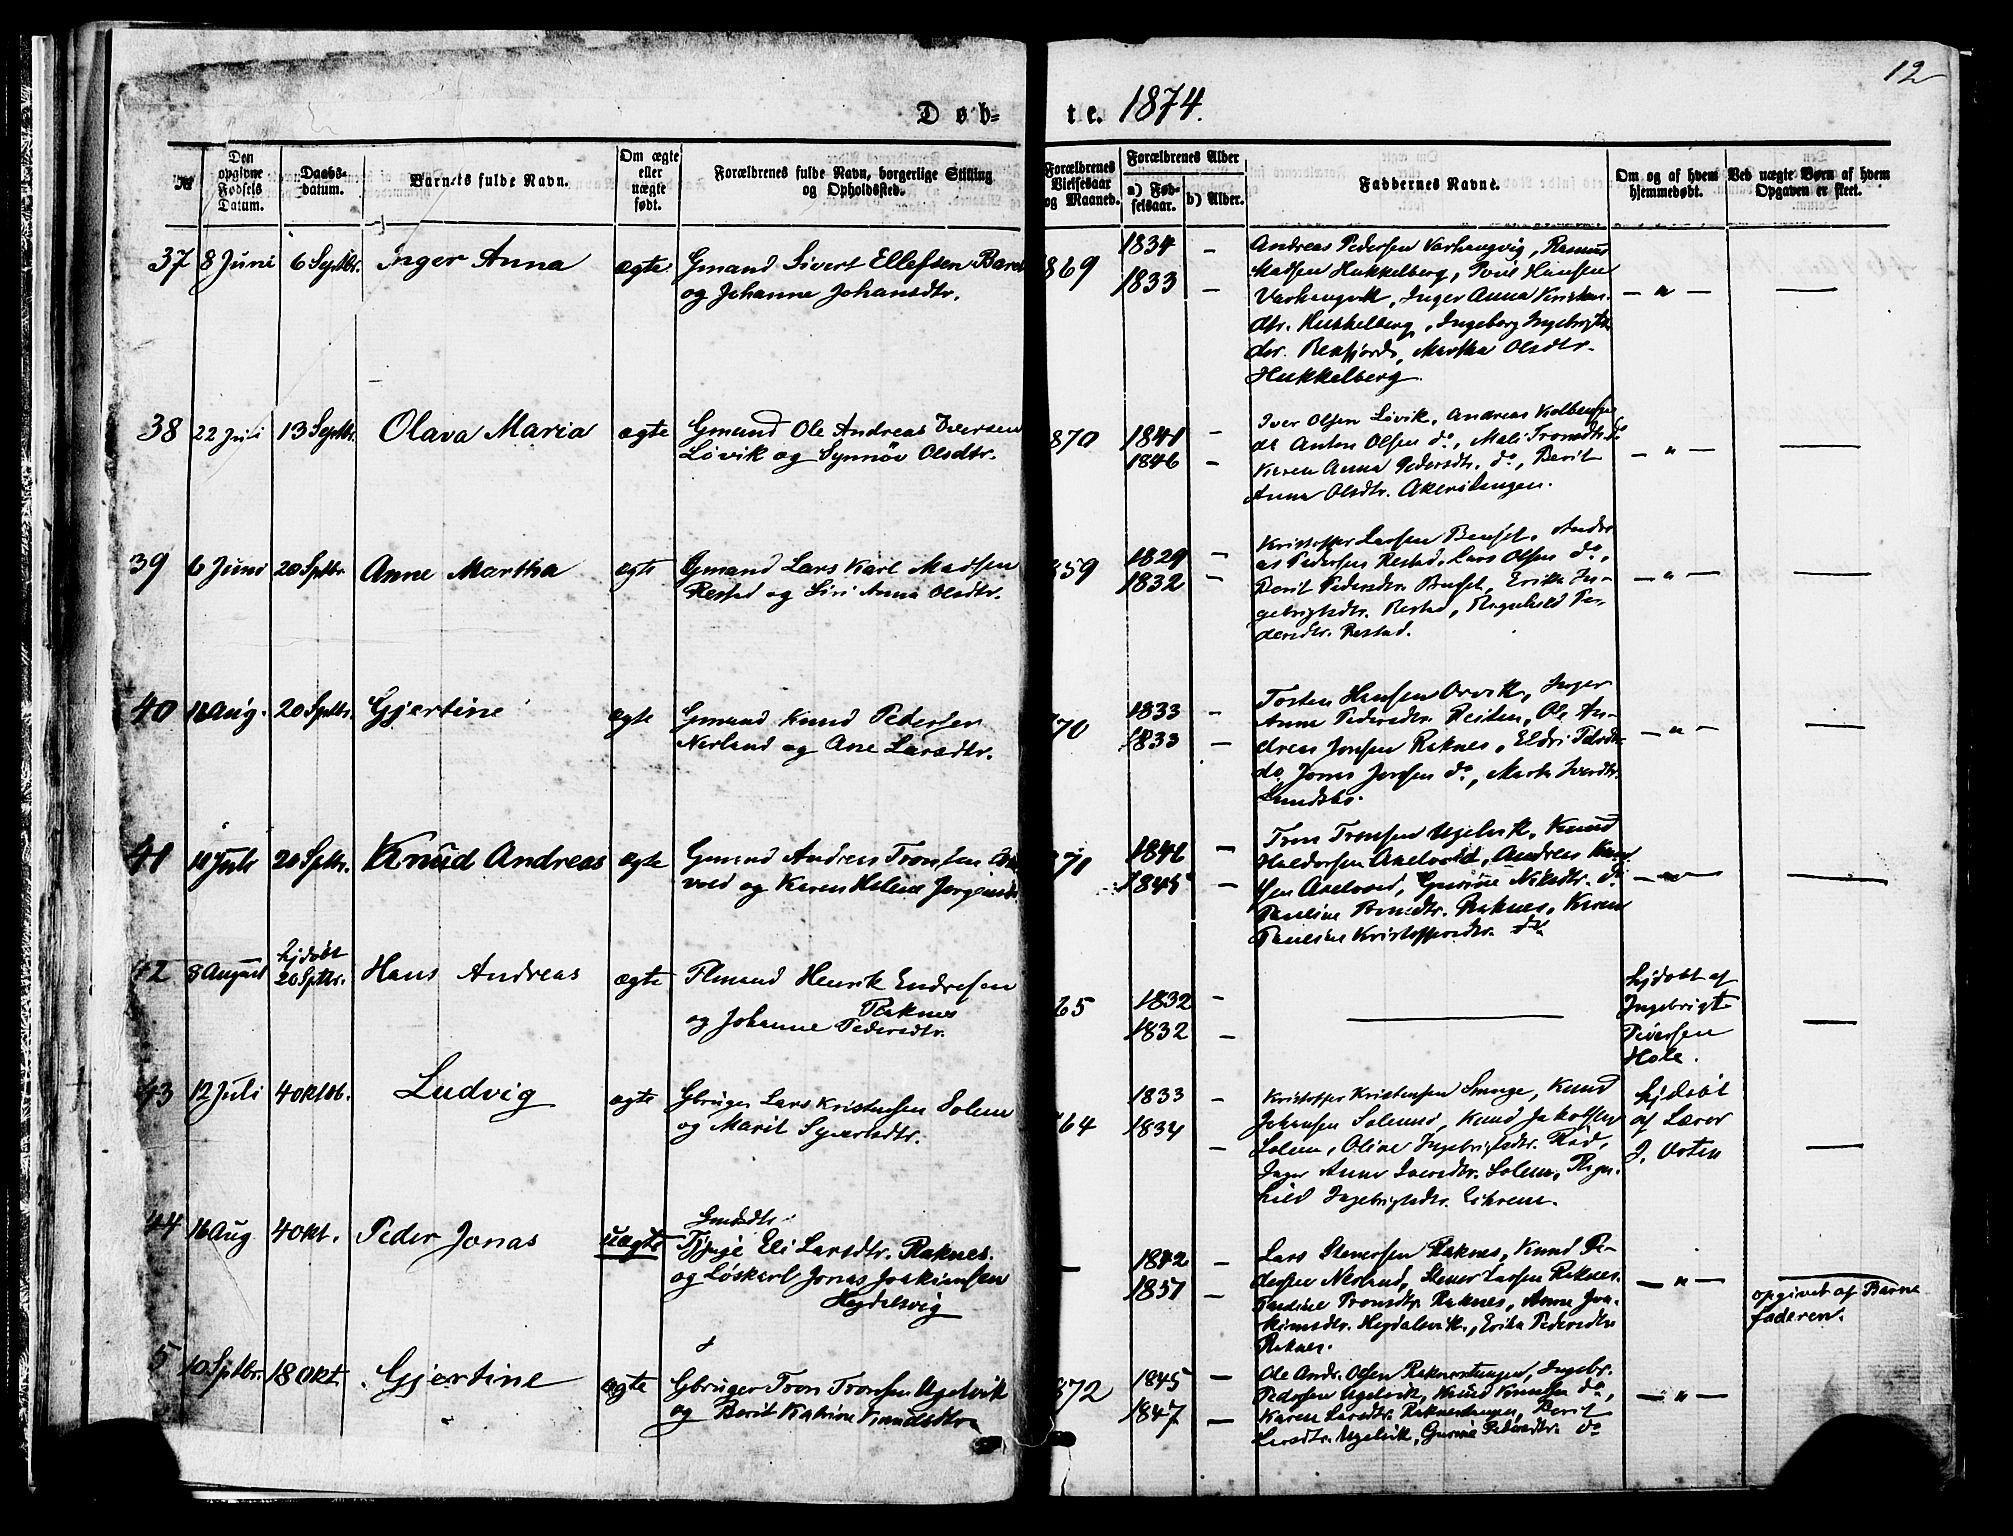 12
Døb- te. 1874.
№
Den opgivne Fødsels Datum.
Daabs- datum.
Barnets fulde Navn.
Om ægte eller uægte født.
Forældrenes fulde Navn, borgerlige Stilling og Opholdssted.
Forældrenes Vielsesaar og Maaned.
Forældrenes Alder
a) Fød- selsaar.
b) Alder.
Faddernes Navne.
Om og af hvem hjemmedøbt.
Ved uægte Børn af hvem Opgaven er skeet.
37 8 Juni 6 Septbr. Inger Anna ægte Gmand Sivert Ellefsen
og Johanne Johansdtr.
869 1834 —
1833 —
Andreas Pedersen Varhaugvig, Rasmus
Madsen Hukkelberg, Poul Hansen
Varhaugvik, Inger Anna Kristen-
dtr. Hukkelberg, Ingeborg Ingebrigts
dtr. Martha Olsdtr.
Hukkelberg.
— " — —
38 22 Juli 13 Septbr. Olava Maria ægte Gmand Ole Andreas Iversen
Løvik og Synnøv Olsdtr.
870 1841 —
1846 —
Iver Olsen Løvik, Andreas
do Anton Olsen do, Mali Tronsdtr. do
Karen Anna Pedersdtr. do, Berit
Anna Olsdtr. Akerslengen.
— " — —
39 6 Juni 20 Sptbr Anne Martha ægte Gmand Lars Karl Madsen
Restad og Siri Anna Olsdtr.
859 1829 —
1832 —
Kristoffer Larsen Andre
as Pedersen Restad, Lars Olsen do,
Berit Pedersdtr. Erika In-
gebrigtsdtr. Restad, Ragnhild Pe-
dersdtr. Restad.
— " — —
40 Aug. 20 Sptbr. Gjertine ægte Gmand Knud Pedersen
Nerland og Ane Larsdtr.
70 1833 —
1833 —
Torsten Hansen Orvik, Inger
Anne Pedersdtr. Reiten, Ole An-
dreas Jonsen Raknes, Eldri
do, Jonas Jonsen do, Marta Iversdtr.
— " — —
41 Juli 20 Sptbr. Knud Andreas ægte Gmand Andreas Tronsen
vold og Karen Helene
71 1846 —
1845 —
Tron Tronsen Ugelvik, Knud
Haldorsen Axelvold, Andreas
sen Axelvold, Gurine Nilsdtr. do
Pauline Raknes, Karen
Pauline Kristoffersdtr. do
— " — —
42 8 August hjdøbt
20 Sptbr. Hans Andreas ægte Plmand Henrik Endresen
Raknes
og Johanne Pedersdtr.
65 1832 —
1832 —
—
hjdøbt af
Ingebrigt
Hole.
—
43 12 Juli 4 Oktob. Ludvig ægte Gbruger Lars Kristensen Solem
og Marit Syvertsdtr.
64 1833 —
1834 —
Kristoffer Kristensen Knud
Johansen Knud Jakobsen
Solem, Oline Ingebrigtsdtr.
Inger Anne Iversdtr. Solem, Ragn-
hild Ingebrigtsdtr.
hjdøbt
af Lærer
—
44 16 Aug 4 Okt. Peder Jonas uægte
Pige Eli Larsdtr. Raknes.
og Løskarl Jonas Joakimsen
Hegdalsvig
— 1842 —
1851 —
Lars Stenersen Raknes, Knud Pe-
dersen Nerland, Stener Larsen Raknes.
Tronsdtr. Raknes, Anne Joa-
kimsdtr. Hegdalsvik, Erika Pedersdtr.
Raknes.
— " — —
opgivet af Barne
faderen.
5 10 Sptbr. 18 Okt. Gjertine ægte Gbruger Tron Tronsen Ugelvik
og Berit Katrine Knudsdtr.
872 1845 —
1847 —
Ole Andr. Olsen Ingebr.
Pedersen Ugelvik, Knud Knudsen do,
Karen Larsdtr. Berit
Larsdtr. Ugelvik, Gurine Pedersdtr. do
— " —